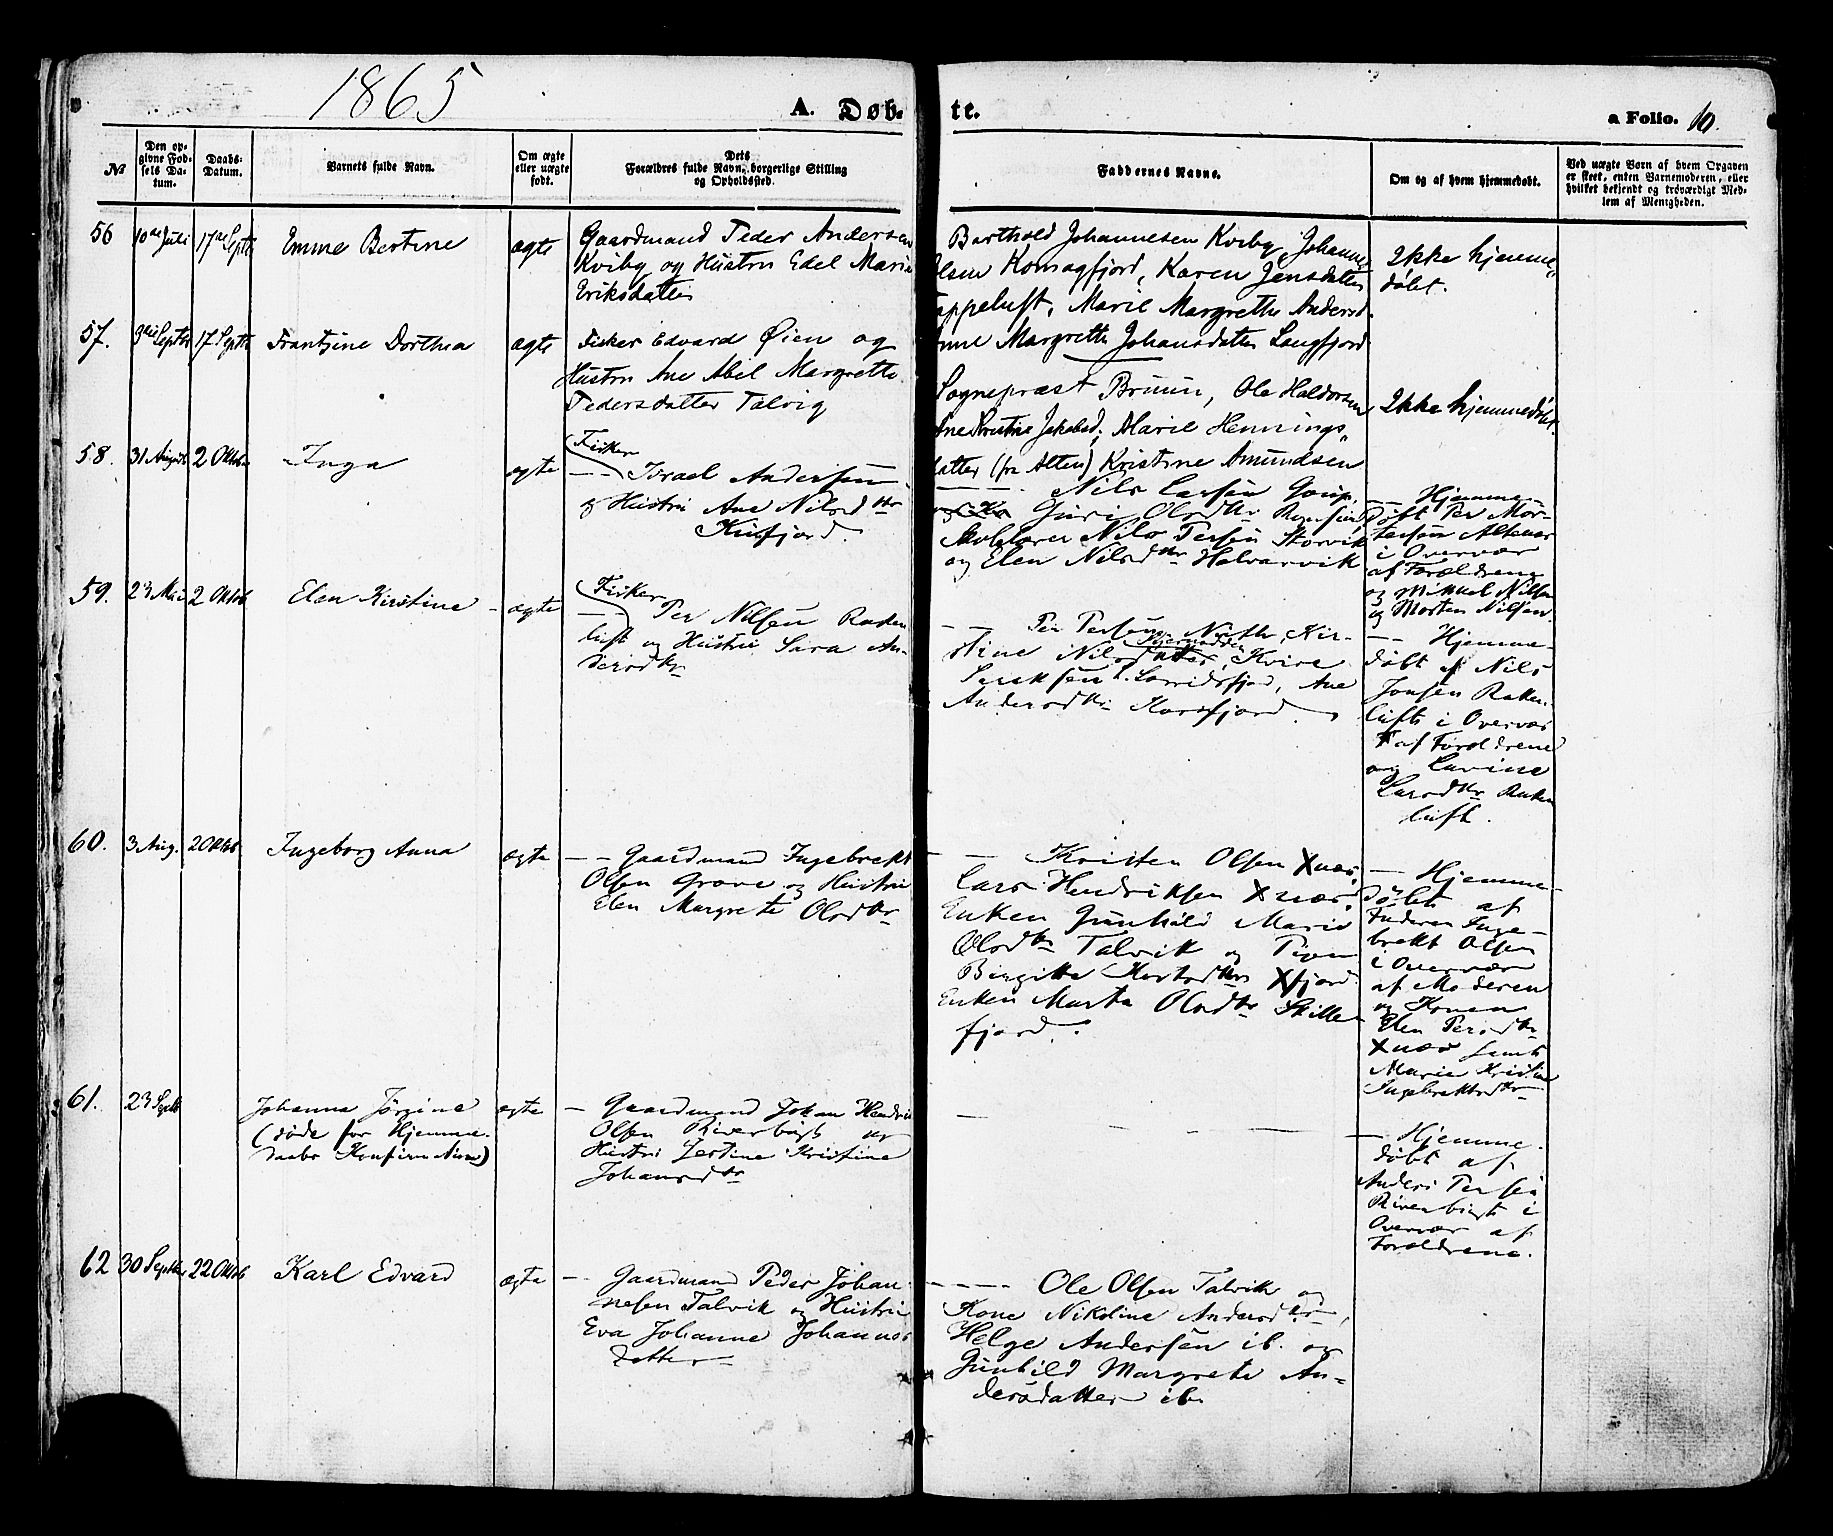 1865
A. Døb-
te.
a Folio. 10.
№
Den op-
givne Fød-
sels Da-
tum.
Daabs-
Datum.
Barnets fulde Navn.
Om ægte
eller uægte
født.
Dets
Forældres fulde Navn, borgerlige Stilling
og Opholdssted.
Faddernes Navne.
Om og af hvem hjemmedøbt.
Ved uægte Børn af hvem Opgaven
er skeet, enten Barnemoderen, eller
hvilket bekjendt og troværdigt Med-
lem af Menigheden.
56
10de Juli
17de Septb
Emme Bertine
ægte
Gaardmand Peder Andersen
Kviby og Hustru Edel Marie
Eriksdatter
Barthold Johannesen Kviby, Johannes
Olsen Komagfjord, Karen Jensdatter
Tappeluft, Marie Margrethe Andersd.
Anne Margrethe Johansdatter Langfjord
Ikke hjemme-
døbt.
57.
3die Septbr
17 Septb
Frantzine Dorthea
ægte
Fisker Edvard Øien og
Hustru Ane Abel Margrethe
Pedersdatter Talvig
Sognepræst Bruun, Ole Haldorsen,
Ane Kristine Jakobsd., Marie Hennings-
datter (fra Alten) Kristine Amundsen
Ikke hjemmedøbt.
58.
31 August
2 Oktob
Inga
ægte
Fisker
— — Israel Andersen
og Hustru Ane Nilsdtr
Kufjord.
— — Nils Larsen
Guri Olsdtr
Skolelærer Nils Persen Storvik
og Elen Nilsdtr Halvarvik
— — Hjemme-
døbt Per Mor-
tensen
i Overvær
af Forældrene
og Mikkel Nilsen
og Morten Nilsen.
59.
23 Mai
2 Oktob
Elen Kirstine
ægte
Fisker
— — Per Nilsen Raken-
luft og Hustru Sara An-
dersdtr
— — Per Persen Kir-
stine Nilsdatter,
Ane
Andersdtr Korsfjord.
— — Hjemme-
døbt af Nils
Jonsen Raken-
luft i Overvær
af Forældrene
og Lavine
Larsdtr Raken
luft.
60.
3 Aug.
2 Oktob
Ingeborg Anna
ægte
— — Gaardmand Ingebrekt
Olsen Grøve og Hustru
Elen Margrete Olsdtr
— — Kristen Olsen Xnæs,
Lars Hendriksen Xnæs.
Enken Gunhild Marie
Olsdtr Talvik og Pigen
Birgitte Xfjord
Enken Marta Olsdtr Skille-
fjord.
— Hjemme-
døbt af
Faderen Inge-
brekt Olsen
i Overvær
af Moderen
og Konen
Elen Persdtr
Xnæs samt
Marie Kristine
Ingebrektsdtr
61.
23 Septb
Johanna Jørgine
(døde før Hjemme-
daabs Konfirmation)
ægte
— Gaardmand Johan Hendrik
Olsen Riverbugt og
Hustru Zestine Kristine
Johansdtr
— — — —
— Hjemme-
døbt af
Anders Persen
Riverbugt i
Overvær af
Forældrene.
62
30 Septbr
22 Oktob
Karl Edvard
ægte
— — Gaardmand Peder Johan-
nesen Talvik og Hustru
Eva Johanne Johannes-
datter
— — — — Ole Olsen Talvik og
Kone Nikoline Andersdtr,
Helge Andersen ib. og
Gunhild Margrete An-
dersdatter ib.